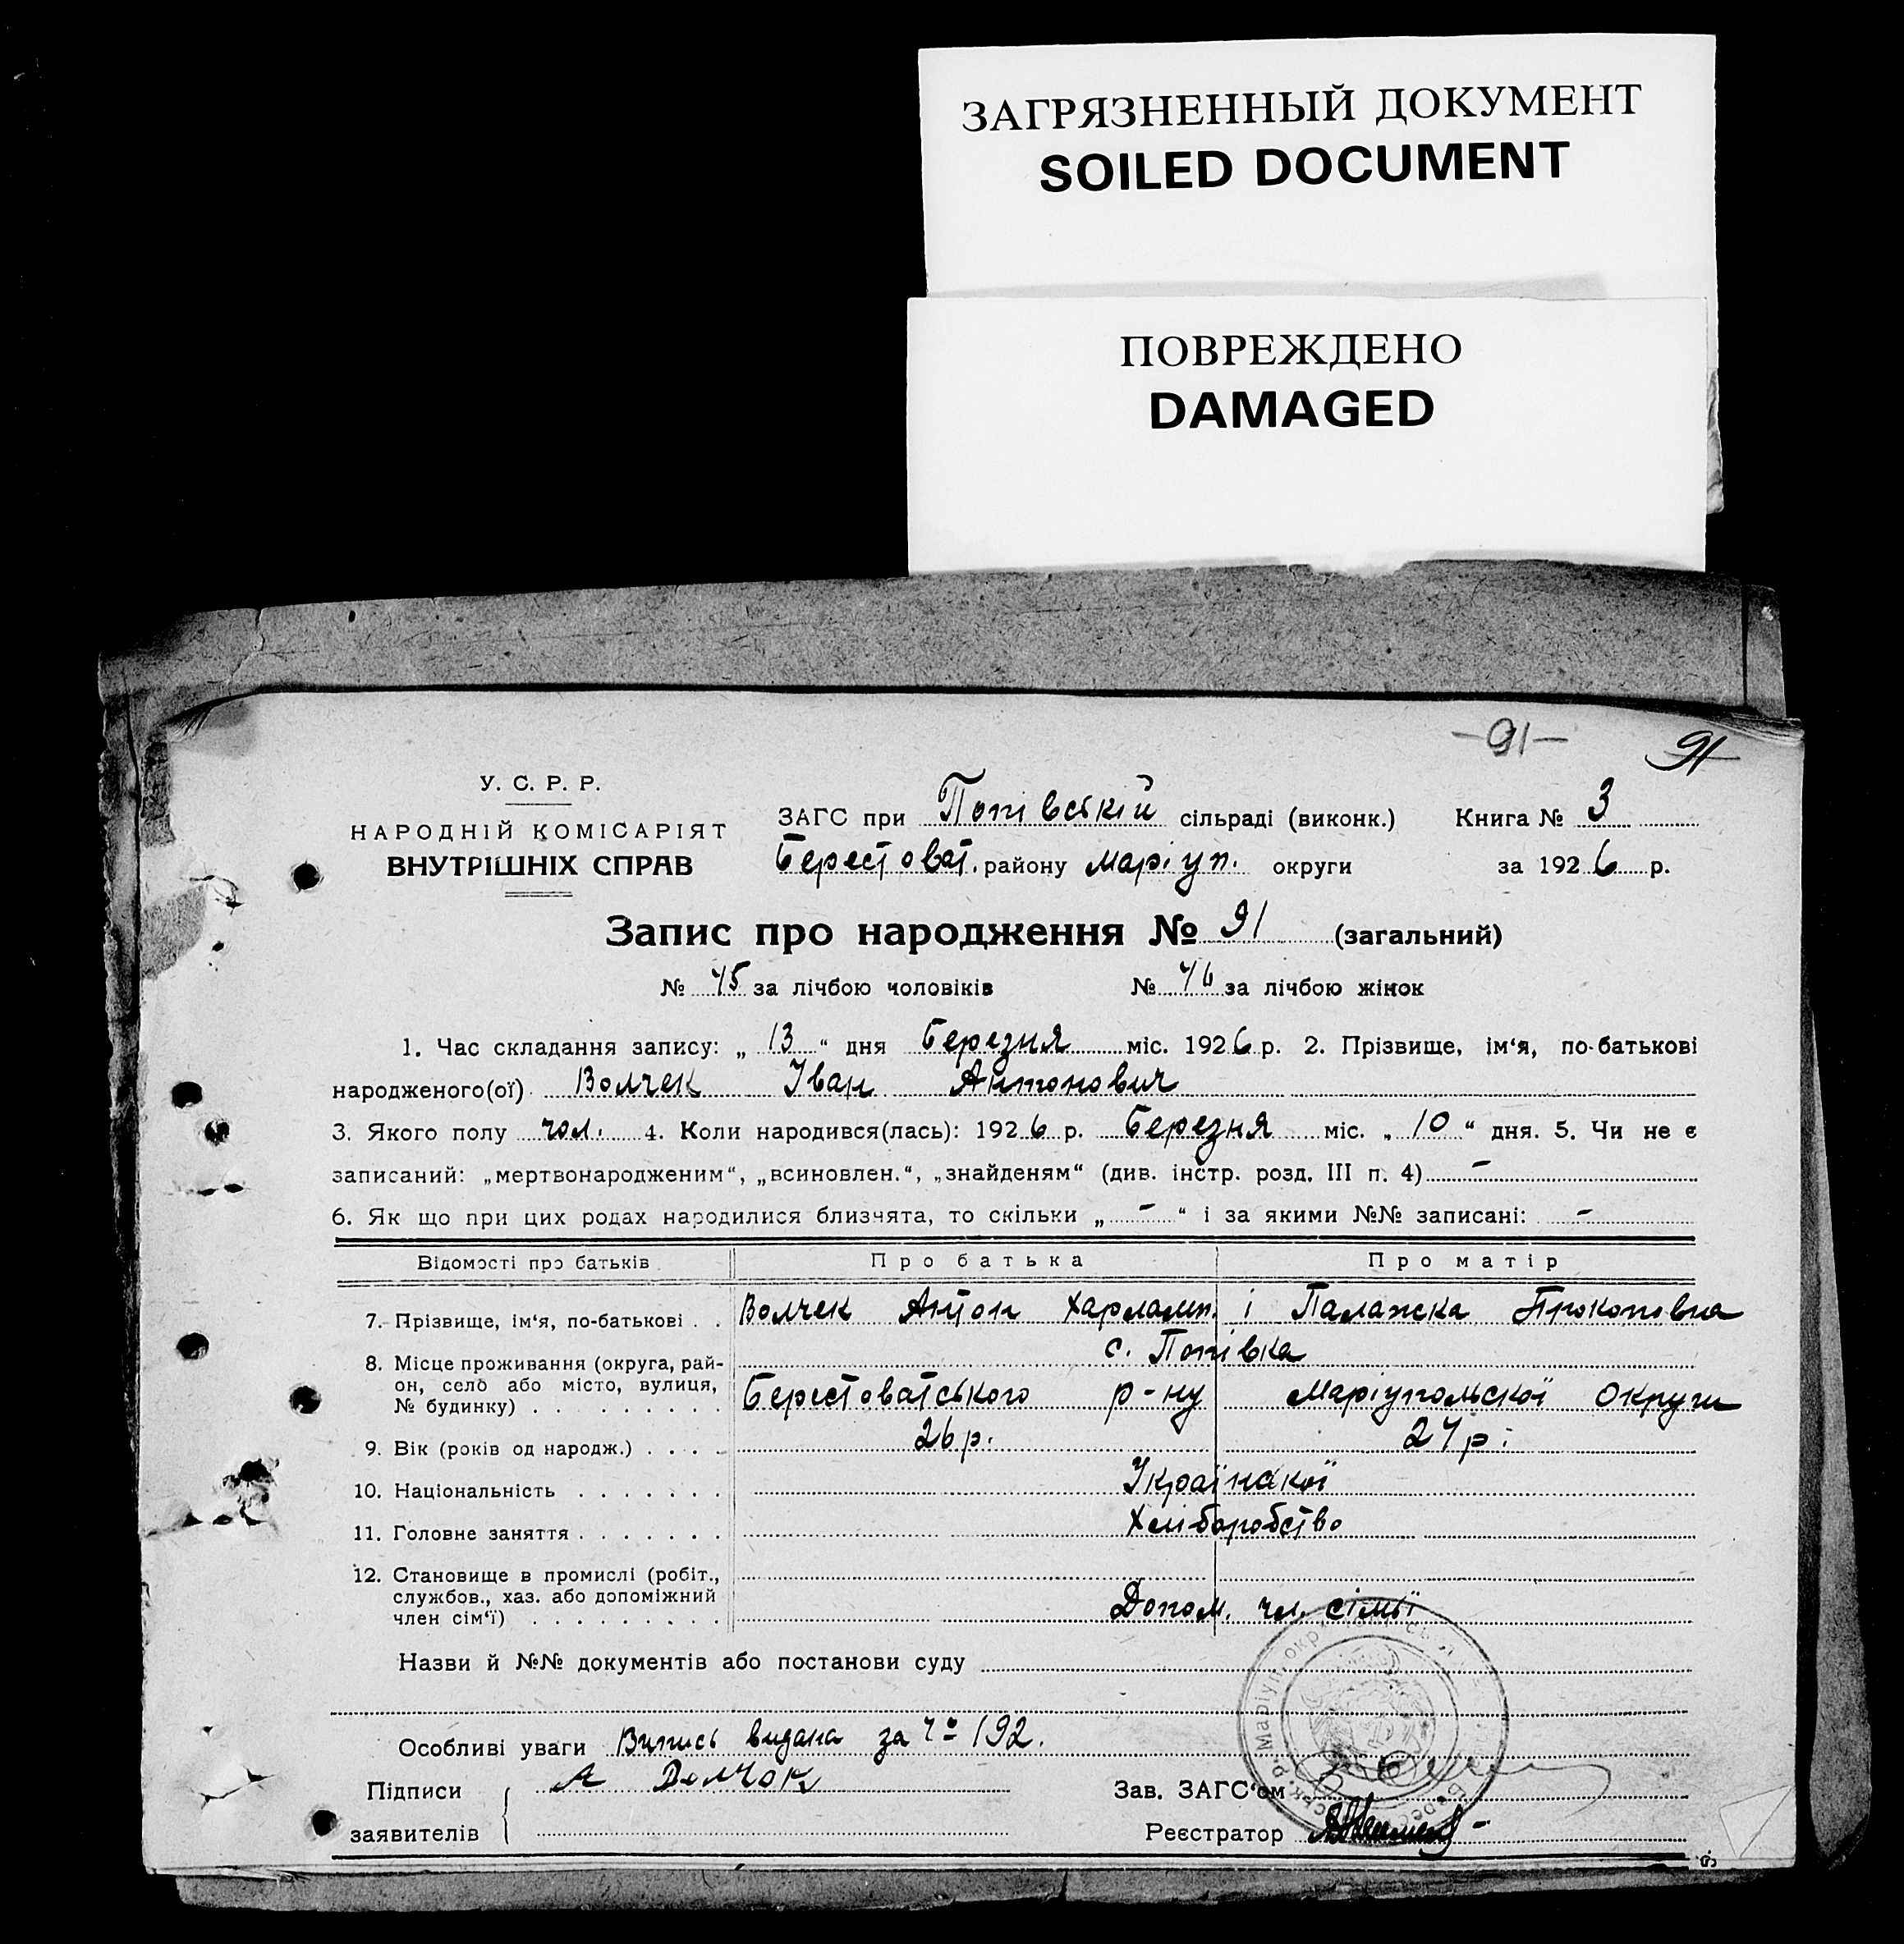 ЗАГРЯЗНЕННЫЙ ДОКУМЕНТ
SOILED DOCUMENT
ПОВРЕЖДЕНО
DAMAGED
–91– 91
У. С. Р. Р.
НАРОДНІЙ КОМІСАРІЯТ
ВНУТРІШНІХ СПРАВ
ЗАГС при Попівській сільраді (виконк.) Книга № 3
Берестоват. району Маріуп. округи за 1926 р.
Запис про народження № 91 (загальний)
№ 45 за лічбою чоловіків № 46 за лічбою жінок
1. Час складання запису: „ 13 “ дня Березня міс. 1926 р. 2. Прізвище, ім‘я, по-батькові
народженого(ої) Волчек Іван Антонович
3. Якого полу чол. 4. Коли народився(лась): 1926 р. Березня міс. „ 10 “ дня. 5. Чи не є
записаний: „мертвонародженим“, „всиновлен.“, „знайденям“ (див. інстр. розд. III п. 4) –
6. Як що при цих родах народилися близнята, то скільки „ – “ і за якими №№ записані: –
Відомості про батьків Про батька Про матір
7. Прізвище, ім‘я, по-батькові . . Волчек Антон Харламп. і Палажка Прокоповна
с. Попівка
8. Місце проживання (округа, рай-
он, село або місто, вулиця,
№ будинку) . . . . . . . . . Берестоватського р-ну Маріупольскої Округи
9. Вік (років од народж.) . . . . 26 р. 24 р.
10. Національність . . . . . . . Українскої
11. Головне заняття . . . . . . . Хліборобство
12. Становище в промислі (робіт.,
службов., хаз. або допоміжний
член сім‘ї) . . . . . . . . . Допом. чл. сімьї
Назви й №№ документів або постанови суду
Особливі уваги Випись видана за № 192.
Підписи А Волчок Зав. ЗАГС‘ом
заявителів Реєстратор